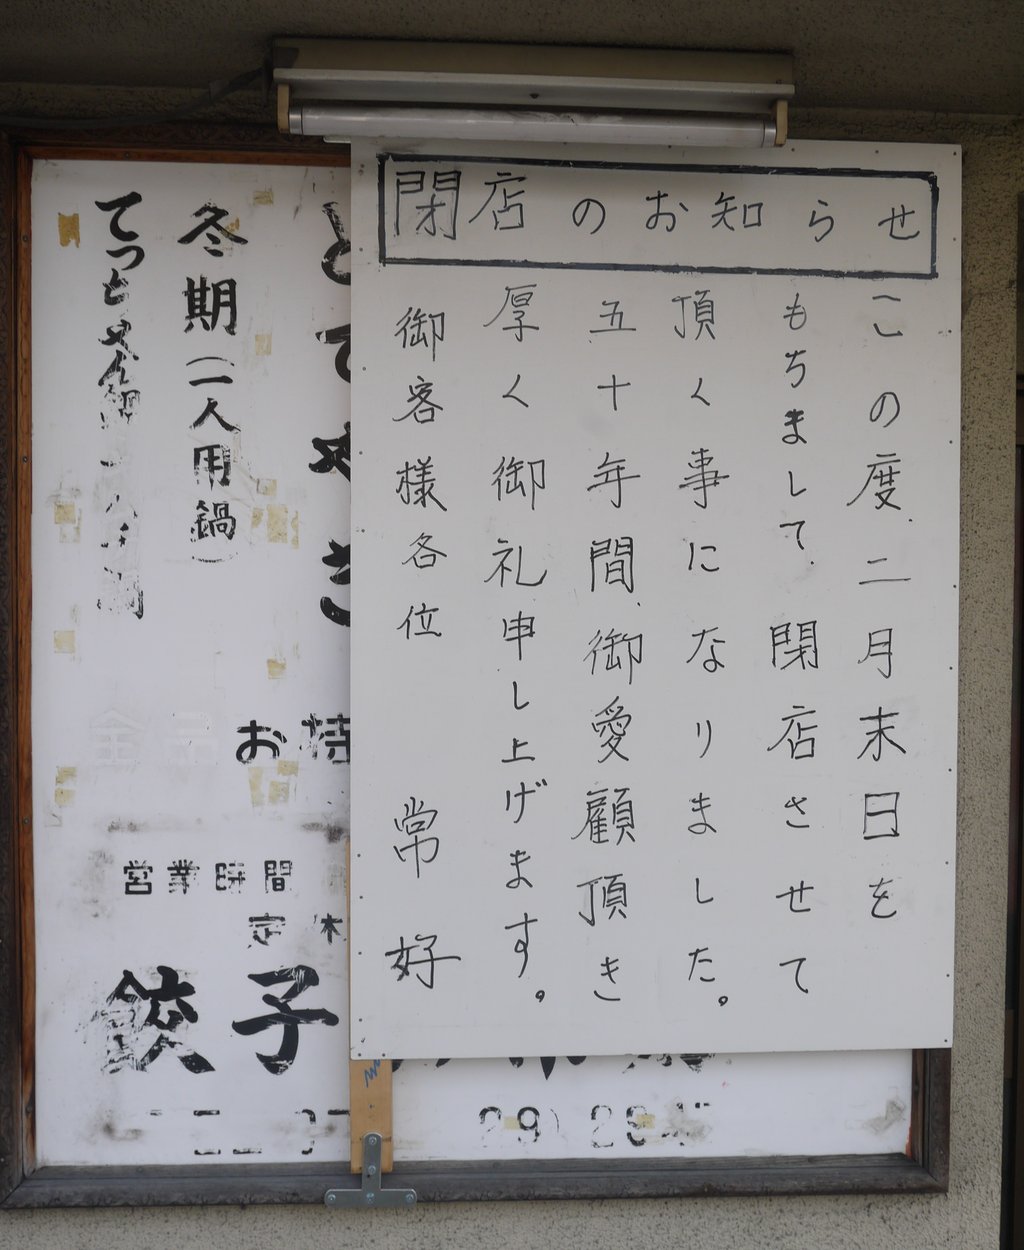 閉店のお知らせ
この度、二月末日を
もちまして、閉店させて
頂く事になりました。
五十年間、御愛顧頂き
厚く御礼申し上げます。
御客様各位 常好
冬期(一人用鍋)
てっちゃん鍋
お持
営業時間
定休
餃子
29)284